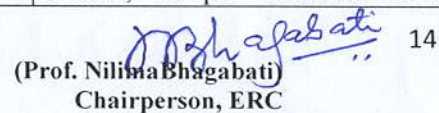 NBhagabati 14
(Prof. NilimaBhagabati)
Chairperson, ERC